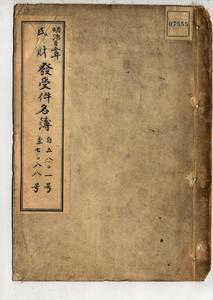 07555
明治三十五年
民財發受件名簿
自五八〇一号
至七〇八八号